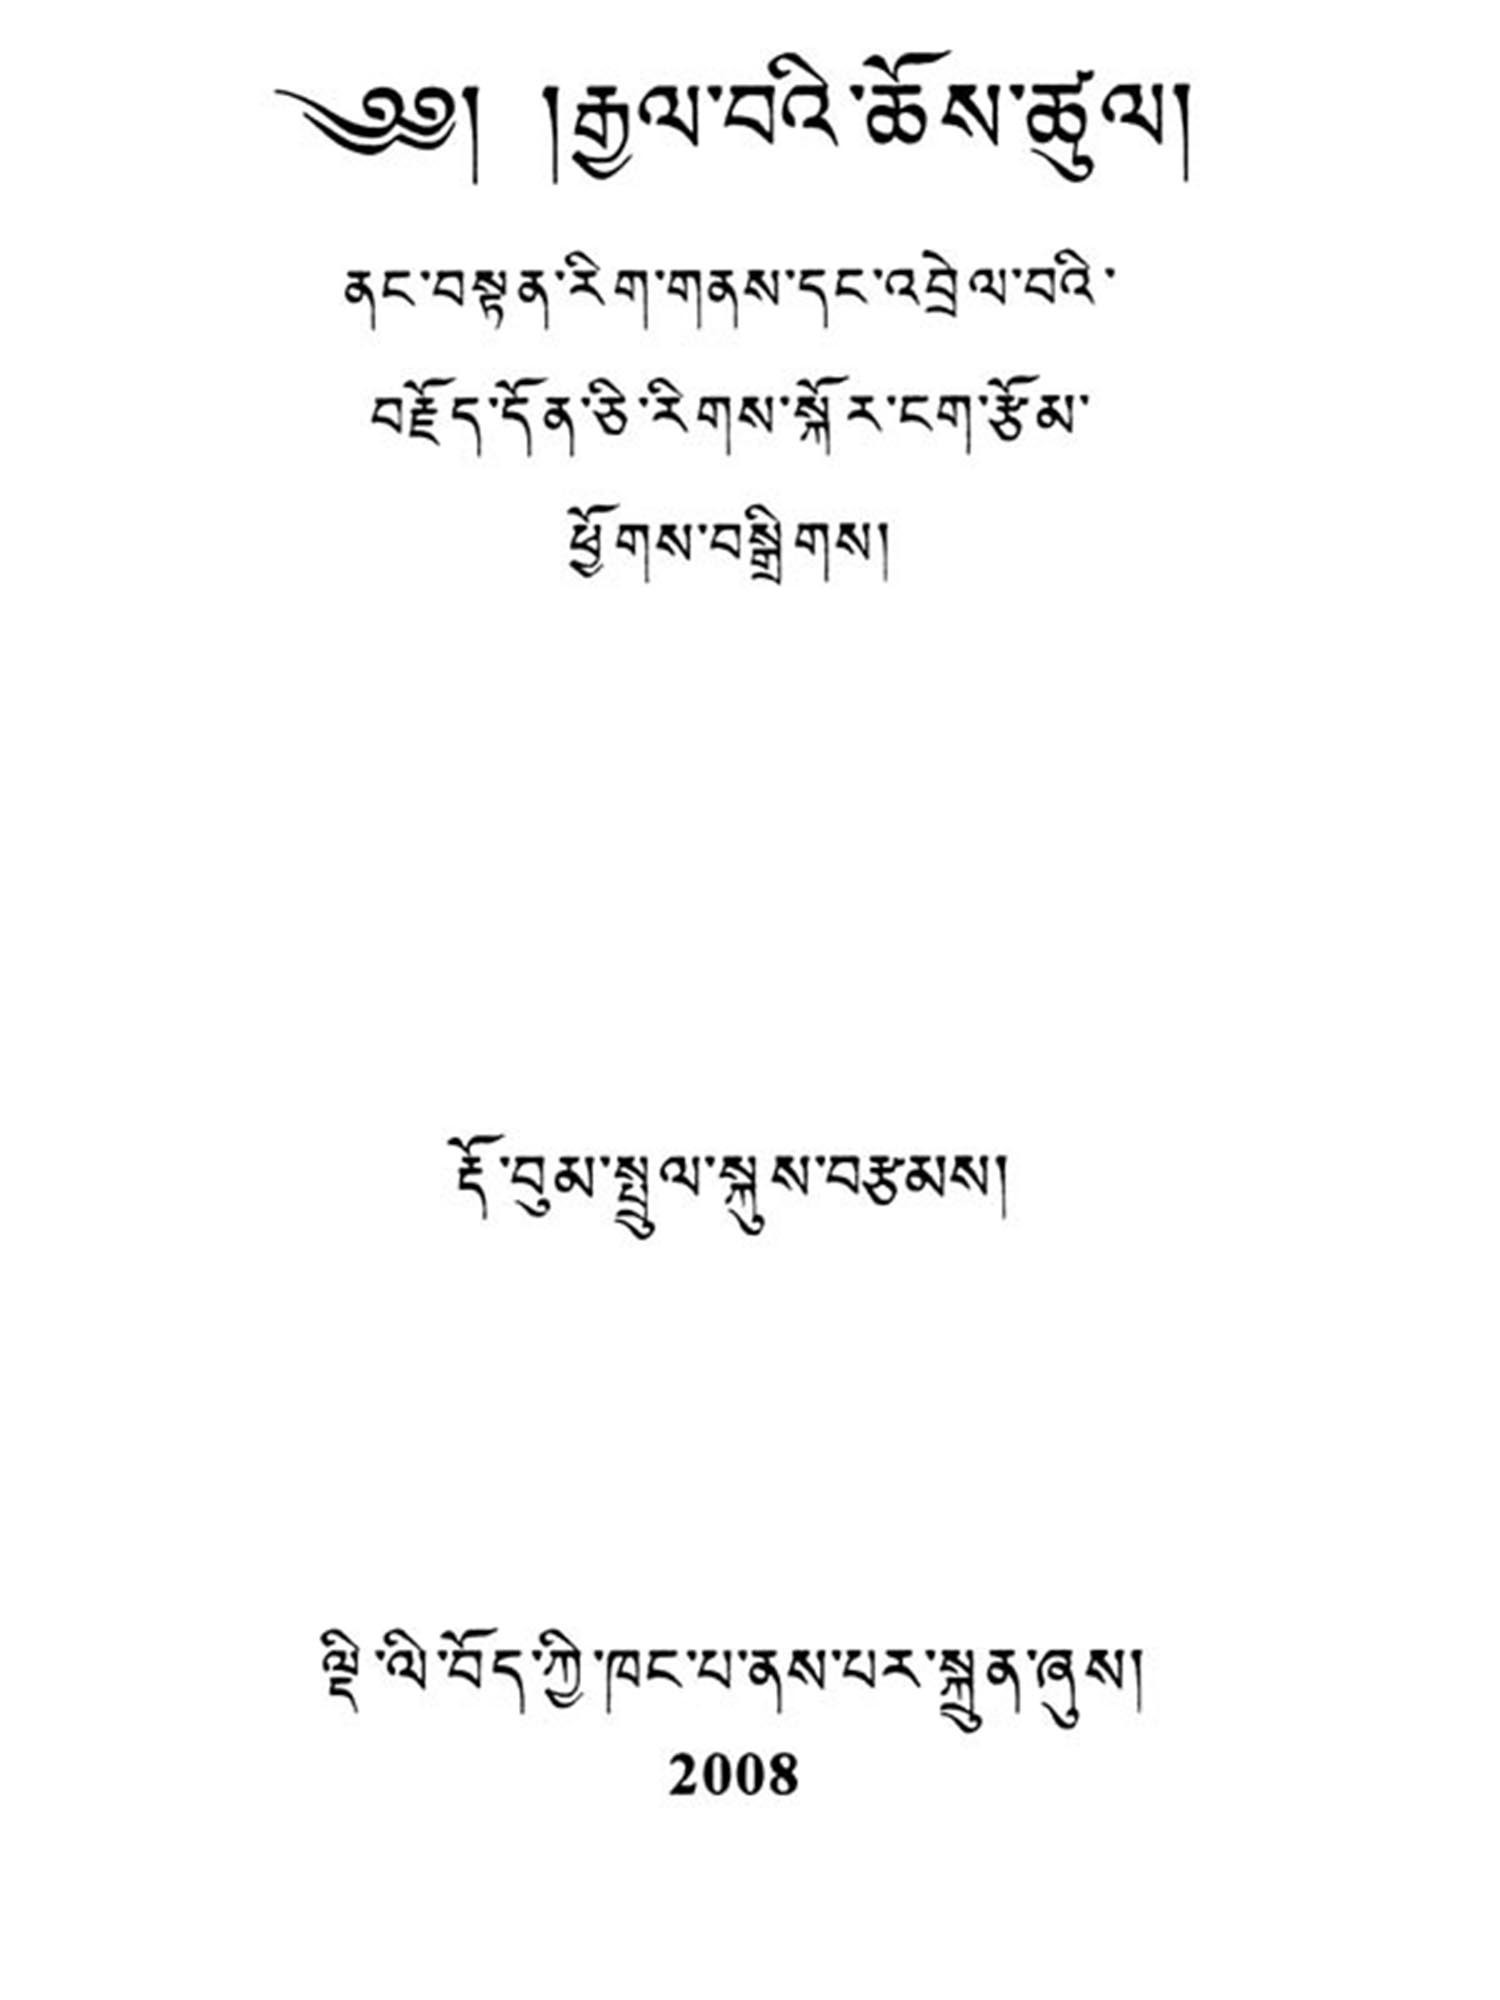 ༄༅། །རྒྱལ་བའི་ཆོས་ཚུལ།
ནང་བསྟན་རིག་གནས་དང་འབྲེལ་བའི་
བརྗོད་དོན་ཅི་རིགས་སྐོར་ངག་རྩོམ་
ཕྱོགས་བསྒྲིགས།
རྡོ་བུམ་སྤྲུལ་སྐུས་བརྩམས།
ལྡི་ལི་བོད་ཀྱི་ཁང་པ་ནས་པར་སྐྲུན་ཞུས།
2008